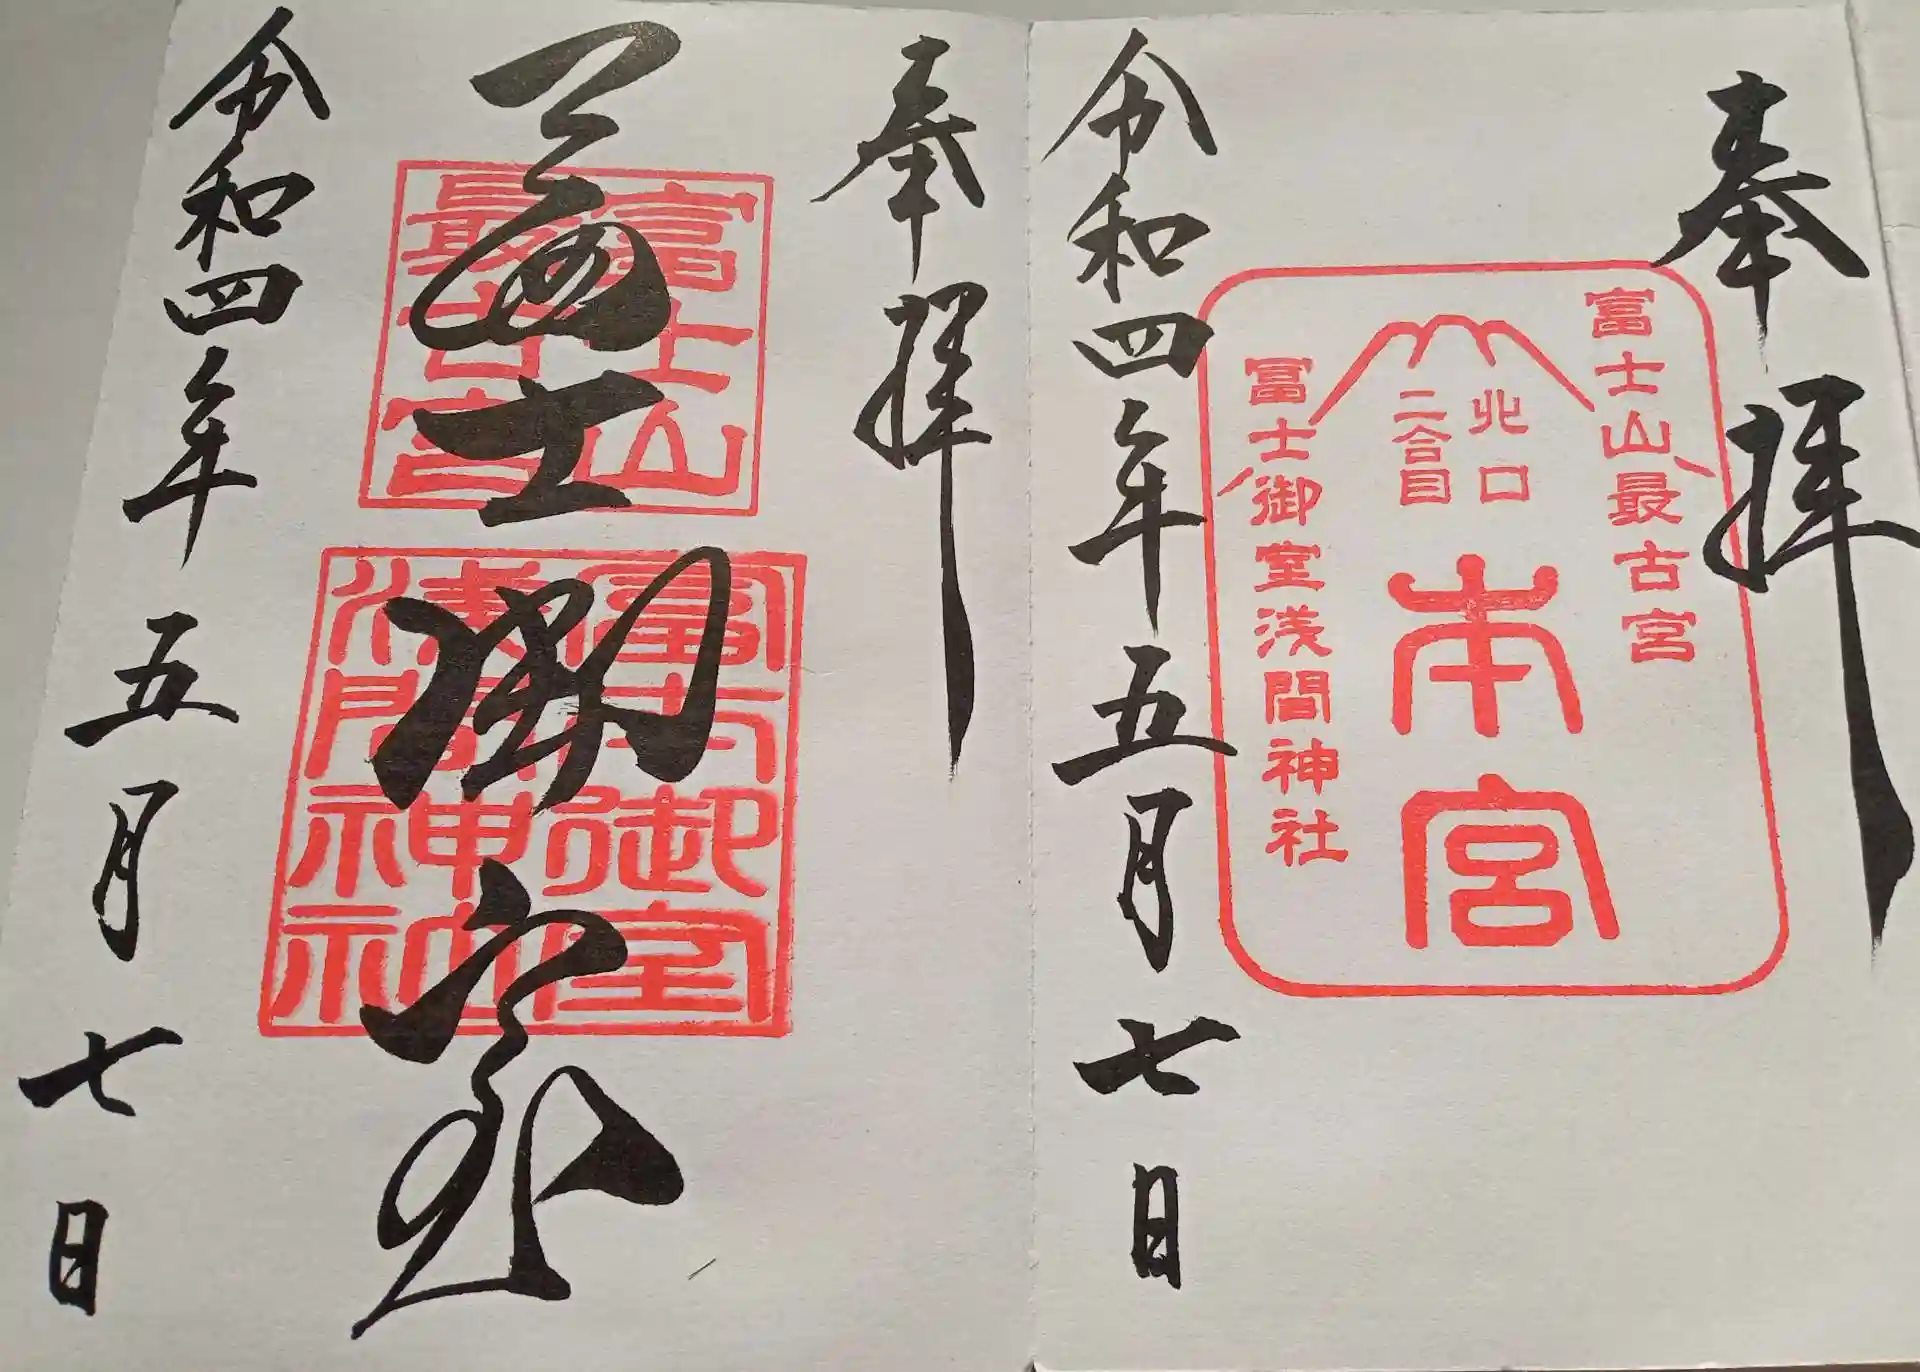 奉拝
富士山最古宮
北口
二合目
本宮
冨士御室浅間神社
令和四年五月七日
奉拝
富士山
最古宮
冨士御室
冨士御室
浅間神社
令和四年五月七日